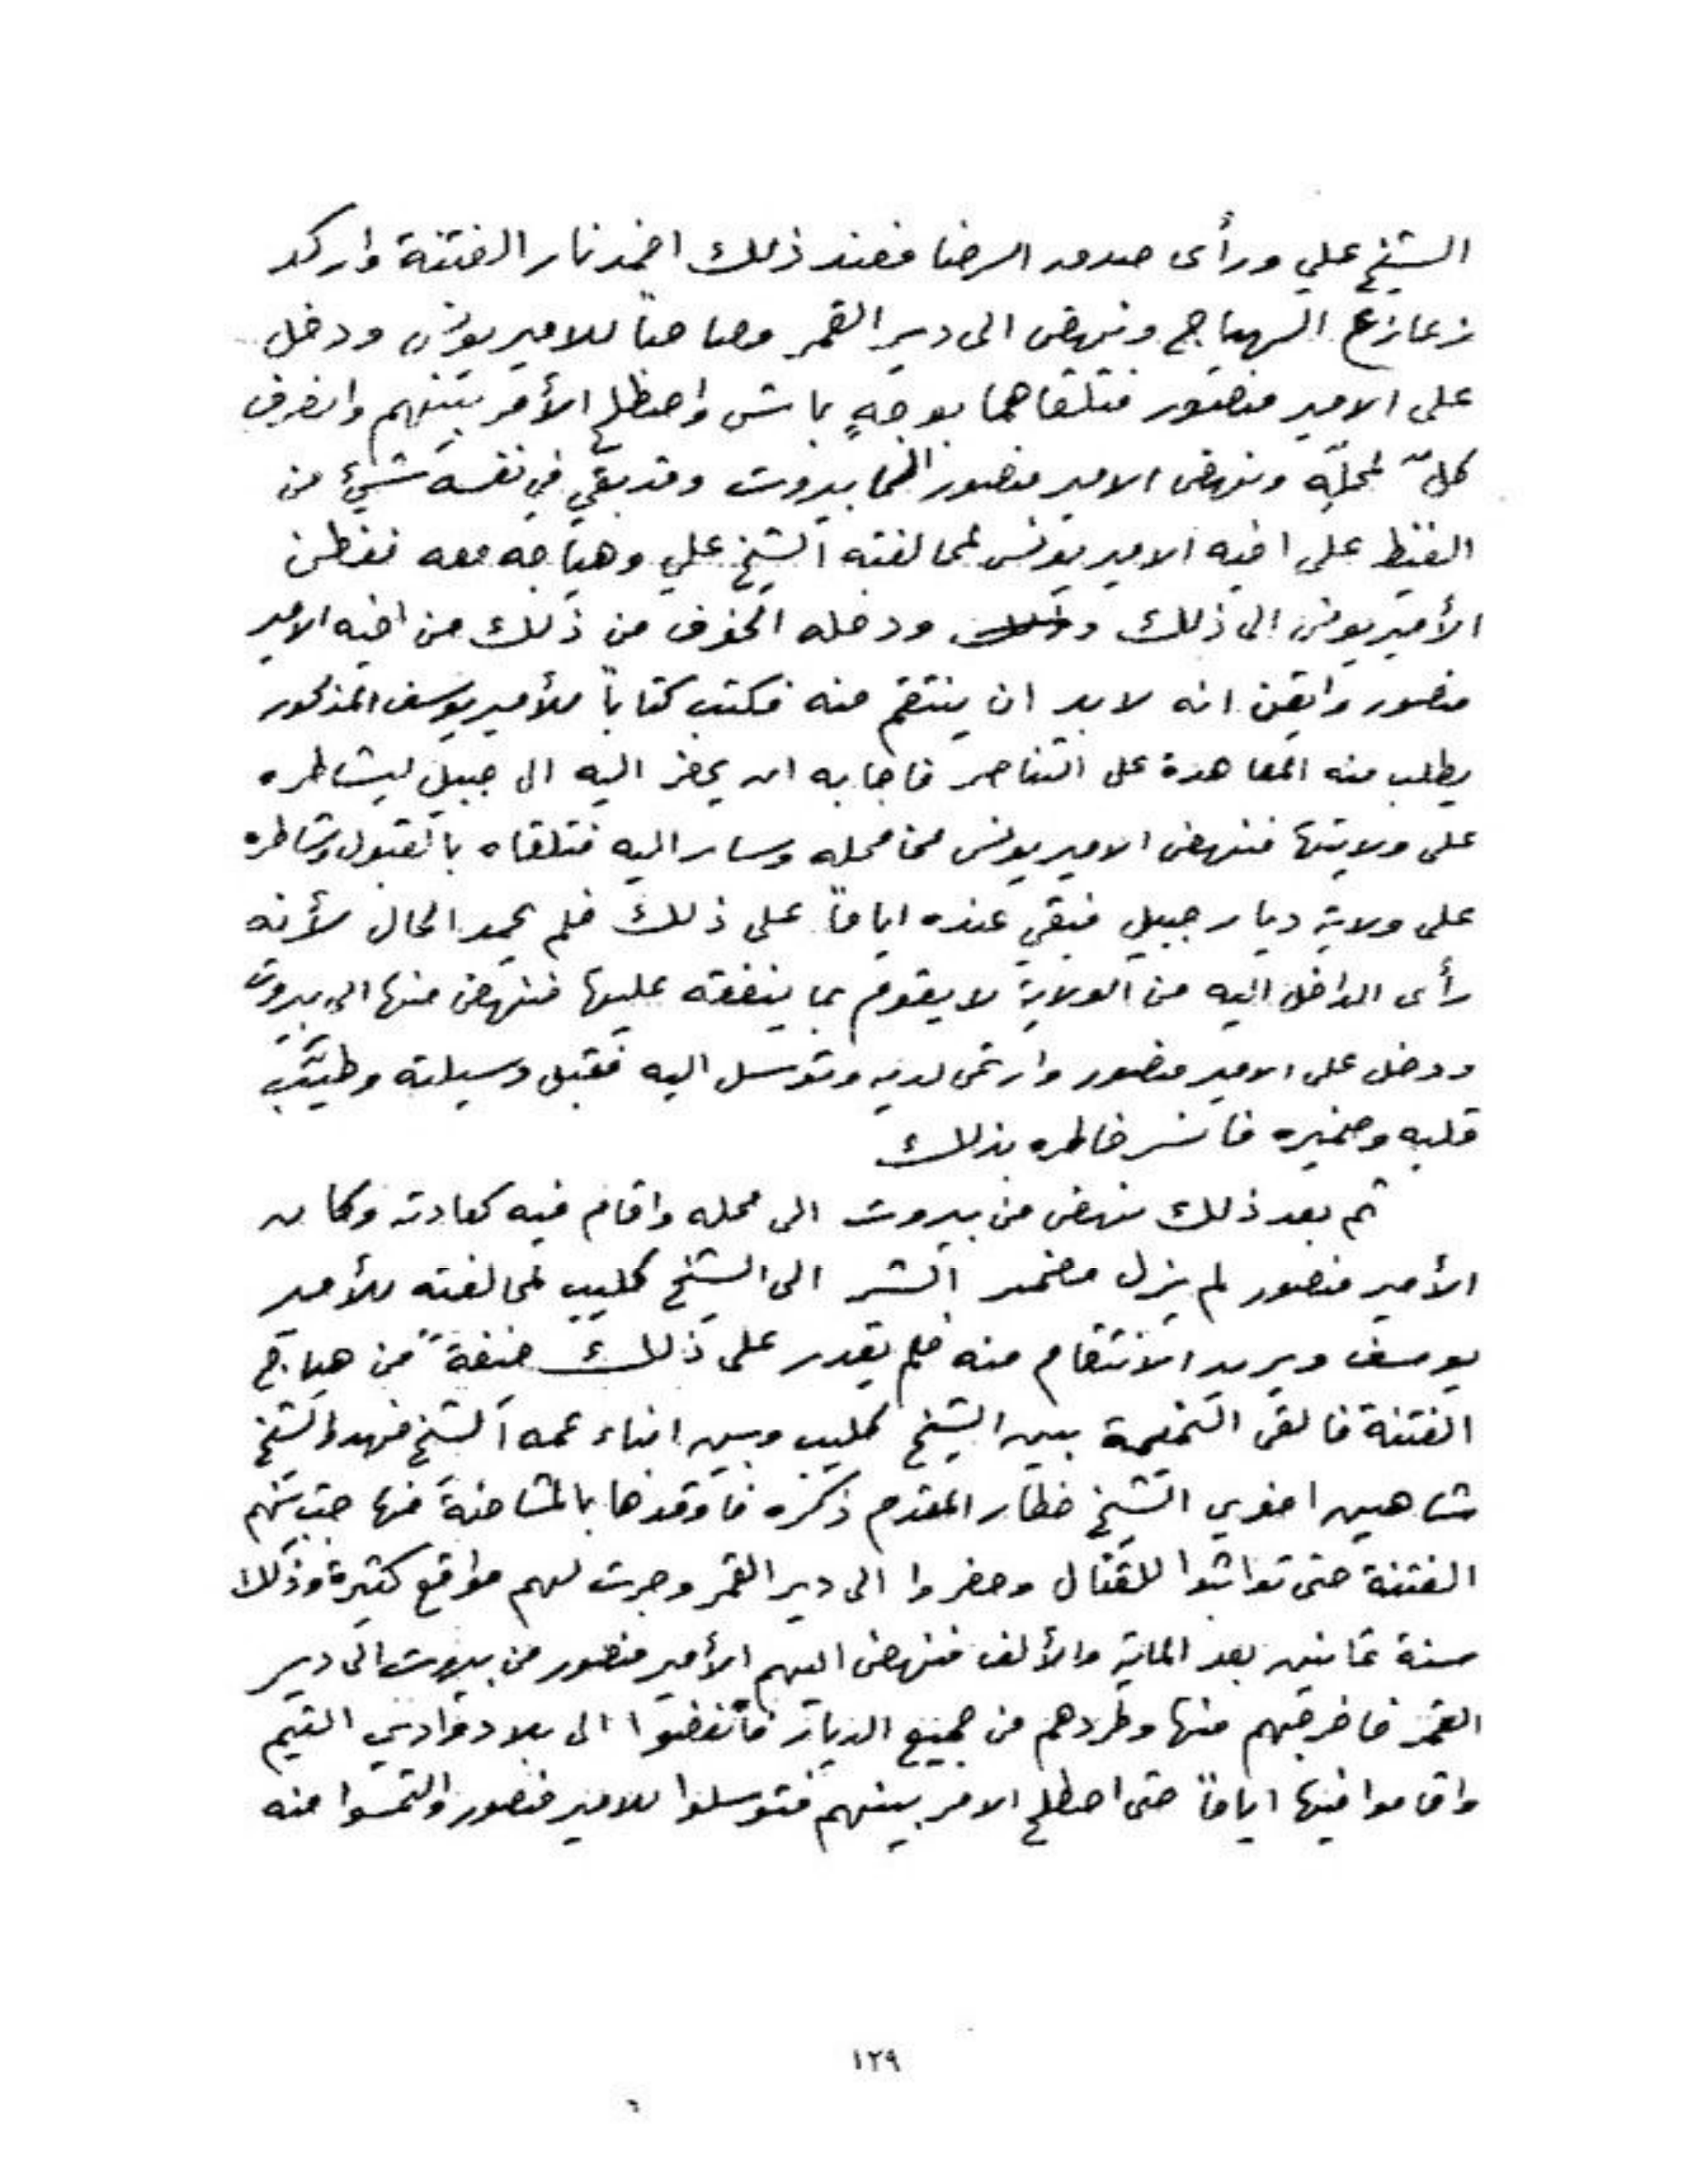 الشيخ علي ورأى صدور الرضا فعند ذلك اخمد نار الفتنة واركد
زعازع الهياج ونهض الى دير القمر مصاحباً للامير يونس ودخل
على الامير منصور فتلقاهما بوجهٍ باش واصطلح الأمر بينهم وانصرف
كلٌ لمحلّهِ ونهض الامير منصور الى بيروت وقد بقي في نفسه شيئ من
الغيظ على اخيه الامير يونس لمحالفته الشيخ علي وهياجه معه ففطن
الأمير يونس الى ذلك ودخله الخوف من ذلك من اخيه الامير
منصور وايقن انه لا بد ان ينتقم منه فكتب كتاباً للأمير يوسف المذكور
يطلب منه المعاهدة على التناصر فاجابه ان يحضر اليه الى جبيل ليشاطره
على ولايتها فنهض الامير يونس من محله وسار اليه فتلقاه بالقبول وشاطره
على ولاية ديار جبيل فبقي عنده اياماً على ذلك فلم يحمد الحال لأنه
رأى الداخل اليه من الولاية لا يقوم بما ينفقه عليها فنهض منها الى بيروت
ودخل على الامير منصور وارتمى لديه وتوسل اليه فقبل وسيلته وطيّب
قلبه وضميره فانسر خاطره بذلك
ثم بعد ذلك نهض من بيروت الى محله واقام فيه كعادته وكان
الأمير منصور لم يزل مضمر الشر الى الشيخ كليب لمحالفته للأمير
يوسف ويريد الانتقام منه فلم يقدر على ذلك خيفةً من هياج
الفتنة فالقى بين الشيخ كليب وبين ابناء عمه الشيخ فهد والشيخ
شاهين اخوي الشيخ خطار المقدم ذكره فاوقدها بالمشاحنة فيما بينهم
الفتنة حتى تواثبوا للقتال وحضروا الى دير القمر وجرت لهم مواقع كثيرة وذلك
سنة ثمانين بعد الماية والألف فنهض اليهم الأمير منصور من بيروت الى دير
القمر فاخرجهم منها وطردهم من جميع الديار فانفضوا الى بلاد وادي التيم
واقاموا فيها اياماً حتى اصطلح الامر بينهم فتوسلوا للامير منصور والتمسوا منه
١٢٩